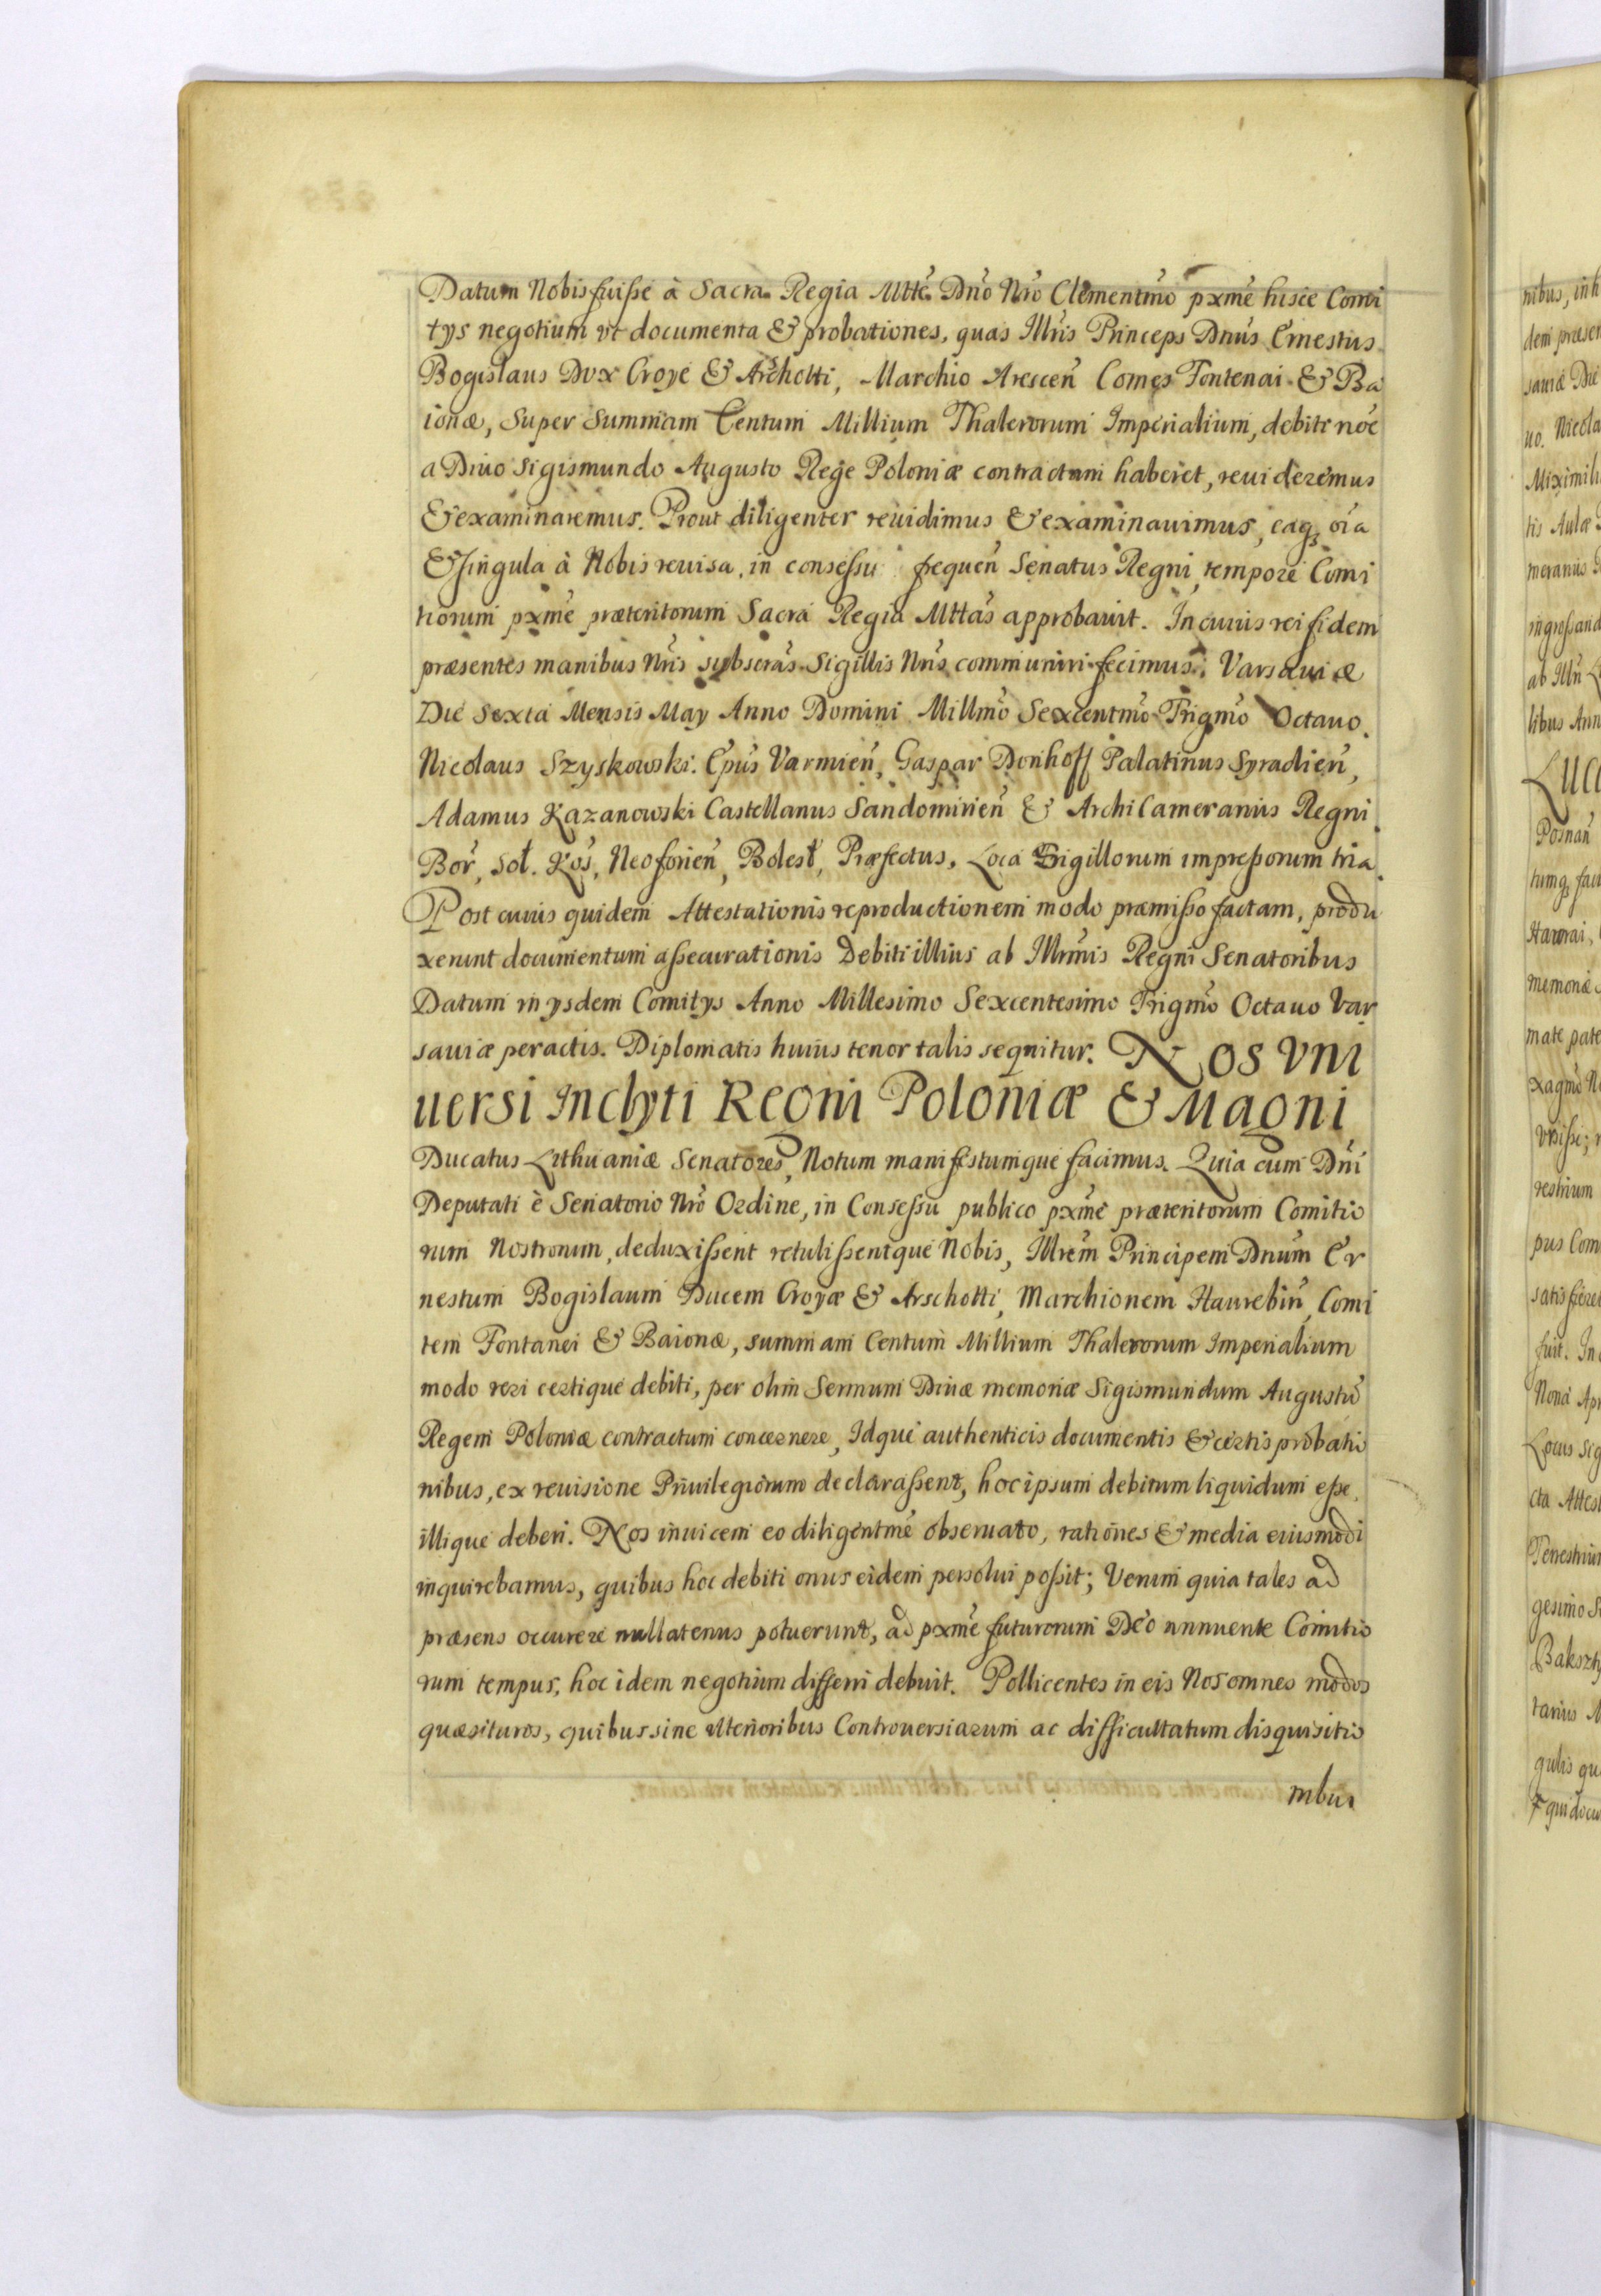 Datum Nobis fuiße à Sacra Regia Mtte Dno Nro Clementmo pxme hisce Comi
tys negotium vt documenta & probationes, quas Illris Princeps Dnus Ernestus
Bogislaus Dux Croye & Archotti, Marchio Arescen Comes Fontenai & Ba
ionæ, Super Summam Centum Millium Thalerorum Imperialium, debiti noe
a Diuo Sigismundo Augusto Rege Poloniæ contractum haberet, reuideremus
& examinaremus. Prout diligenter reuidimus & examinauimus, eaq; oia
& singula à Nobis reuisa, in conseßu frequen Senatus Regni, tempore Comi
tiorum pxme præteritorum Sacra Regia Mttas approbauit. In cuius rei fidem
præsentes manibus Nris subscras Sigillis Nris communiri fecimus. Varsauiæ
Die Sexta Mensis May Anno Domini Millmo Sexcentmo Trigmo Octauo.
Nicolaus Szyskowski. Epus Varmien, Gaspar Donhoff Palatinus Syradien,
Adamus Kazanowski Castellanus Sandomirien & ArchiCamerarius Regni.
Bor, Sol. Kos, Neoforien, Bolest, Præfectus. Loca Sigillorum impreßorum tria.
Post cuius quidem Attestationis reproductionem modo præmißo factam, produ
xerunt documentum aßecurationis Debiti illius ab Illrmis Regni Senatoribus
Datum in ysdem Comitys Anno Millesimo Sexcentesimo Trigmo Octauo Var
sauiæ peractis. Diplomatis huius tenor talis sequitur. Nos Vni
uersi Inclyti Regni Poloniæ & Magni
Ducatus Lithuaniæ Senatores, Notum manifestumque facimus. Quia cum Dni
Deputati è Senatorio Nro Ordine, in Conseßu publico pxme præteritorum Comitio
rum Nostrorum, deduxißent retulißentque Nobis, Illrem Principem Dnum Er
nestum Bogislaum Ducem Croyæ & Arschotti, Marchionem Haurebin, Comi
tem Fontanei & Baionæ, summam Centum Millium Thalerorum Imperialium
modo veri certique debiti, per olim Sermum Diuæ memoriæ Sigismundum Augustu
Regem Poloniæ contractum concernere, Idque authenticis documentis & certis probatio
nibus, ex reuisione Priuilegiorum declaraßent, hoc ipsum debitum liquidum eße,
illique deberi. Nos inuicem eo diligentme obseruato, rationes & media eiusmodi
inquirebamus, quibus hoc debiti onus eidem persolui poßit; Verum quia tales ad
præsens occurere nullatenus potuerunt, ad pxme futurorum Deo annuente Comitio
rum tempus, hoc idem negotium differri debuit. Pollicentes in eis Nos omnes modos
quæsituros, quibus sine vlterioribus Controuersiarum ac difficultatum disquisitio
nibus